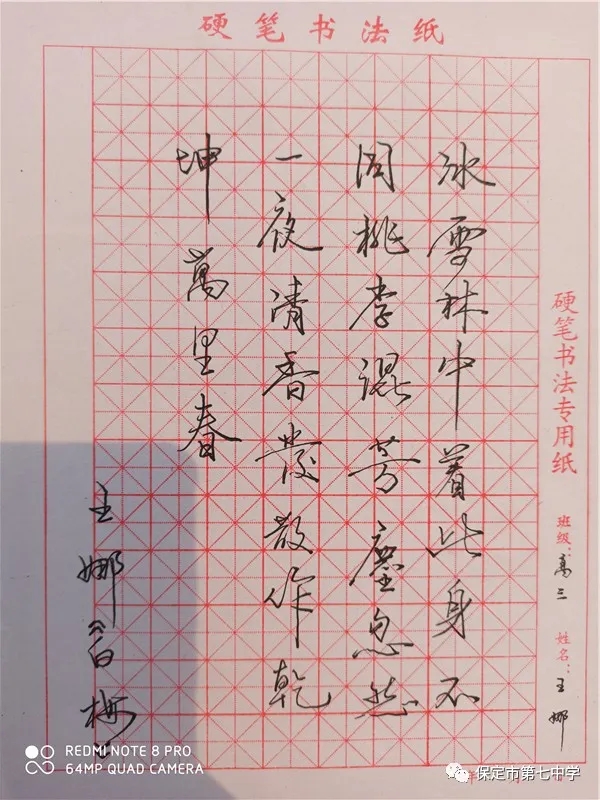 硬笔书法纸
冰雪林中着此身不
同桃李混芳塵忽然
一夜清香發散作乾
坤萬里春
王娜《白梅》
硬笔书法专用纸
班级:高三 姓名:王娜
REDMI NOTE 8 PRO
64MP QUAD CAMERA
保定市第七中学